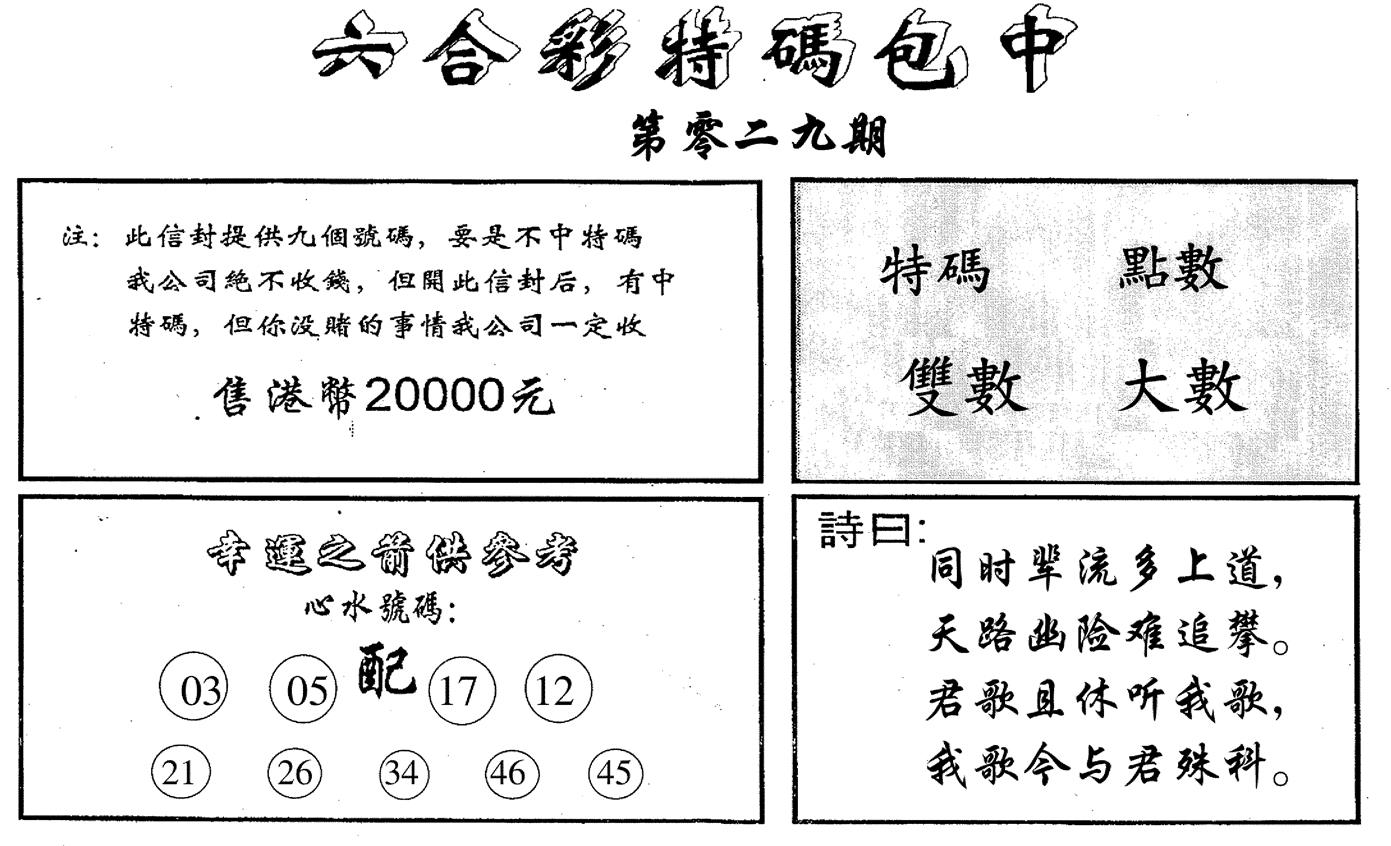 六合彩特碼包中
第零二九期
注：此信封提供九個號碼，要是不中特碼
我公司絶不收錢，但開此信封后，有中
特碼，但你没賭的事情我公司一定收
售港幣20000元
特碼 點數
雙數 大數
幸運之箭供參考
心水號碼：
03 05 配 17 12
21 26 34 46 45
詩曰：
同时辈流多上道，
天路幽险难追攀。
君歌且休听我歌，
我歌今与君殊科。